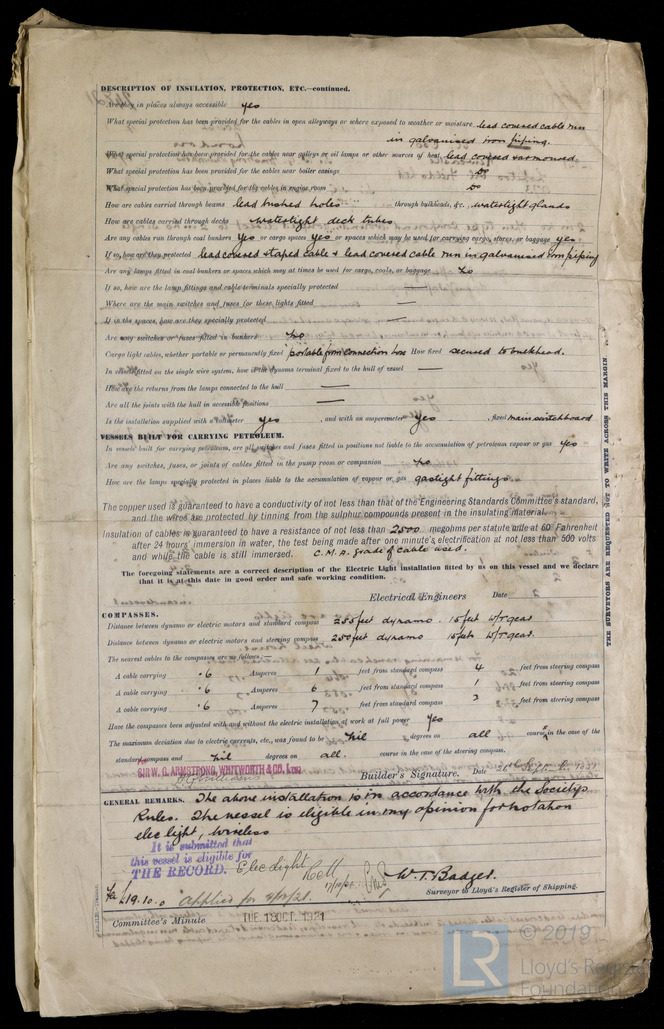 DESCRIPTION OF INSULATION, PROTECTION, ETC.—continued.
Are they in places always accessible yes
What special protection has been provided for the cables in open alleyways or where exposed to weather or moisture lead covered cable run
in galvanised iron piping.
What special protection has been provided for the cables near galleys or oil lamps or other sources of heat lead covered & armoured
What special protection has been provided for the cables near boiler casings do
What special protection has been provided for the cables in engine room do
How are cables carried through beams lead bushed holes through bulkheads, &c. watertight glands
How are cables carried through decks watertight deck tubes
Are any cables run through coal bunkers yes or cargo spaces yes or spaces which may be used for carrying cargo, stores, or baggage yes
If so, how are they protected lead covered & taped cable & lead covered cable run in galvanised iron piping
Are any lamps fitted in coal bunkers or spaces which may at times be used for cargo, coals, or baggage No
If so, how are the lamp fittings and cable terminals specially protected —
Where are the main switches and fuses for these lights fitted —
If in the spaces, how are they specially protected —
Are any switches or fuses fitted in bunkers No
Cargo light cables, whether portable or permanently fixed portable from connection box How fixed secured to bulkhead.
In vessels fitted on the single wire system, how is the dynamo terminal fixed to the hull of vessel —
How are the returns from the lamps connected to the hull —
Are all the joints with the hull in accessible positions —
Is the installation supplied with a voltmeter yes, and with an amperemeter yes, fixed main switchboard
VESSELS BUILT FOR CARRYING PETROLEUM.
In vessels built for carrying petroleum, are all switches and fuses fitted in positions not liable to the accumulation of petroleum vapour or gas yes
Are any switches, fuses, or joints of cables fitted in the pump room or companion No
How are the lamps specially protected in places liable to the accumulation of vapour or gas gastight fittings.
The copper used is guaranteed to have a conductivity of not less than that of the Engineering Standards Committee's standard,
and the wires are protected by tinning from the sulphur compounds present in the insulating material.
Insulation of cables is guaranteed to have a resistance of not less than 2500 megohms per statute mile at 60° Fahrenheit
after 24 hours' immersion in water, the test being made after one minute's electrification at not less than 500 volts
and while the cable is still immersed. C.M.A. grade of cable used.
The foregoing statements are a correct description of the Electric Light installation fitted by us on this vessel and we declare
that it is at this date in good order and safe working condition.
Electrical Engineers Date
COMPASSES.
Distance between dynamo or electric motors and standard compass 255 feet dynamo. 15 feet W/T gear
Distance between dynamo or electric motors and steering compass 250 feet dynamo 15 feet W/T gear.
The nearest cables to the compasses are as follows:—
A cable carrying .6 Amperes 1 feet from standard compass 4 feet from steering compass
A cable carrying .6 Amperes 6 feet from standard compass 1 feet from steering compass
A cable carrying .6 Amperes 7 feet from standard compass 3 feet from steering compass
Have the compasses been adjusted with and without the electric installation at work at full power yes
The maximum deviation due to electric currents, etc., was found to be Nil degrees on all course in the case of the
standard compass and nil degrees on all. course in the case of the steering compass.
SIR W. G. ARMSTRONG, WHITWORTH & CO. LTD.
Builder's Signature. Date 26th Sept. 1921
GENERAL REMARKS. The above installation is in accordance with the Society's
Rules. The vessel is eligible in my opinion for notation
elec light, wireless
It is submitted that
this vessel is eligible for
THE RECORD. Elec light
17/10/21
W. T. Badger.
Surveyor to Lloyd's Register of Shipping.
£19.10.0 Applied for
Committee's Minute TUE. 18 OCT. 1921
THE SURVEYORS ARE REQUESTED NOT TO WRITE ACROSS THIS MARGIN
LR
© 2019
Lloyd's Register
Foundation